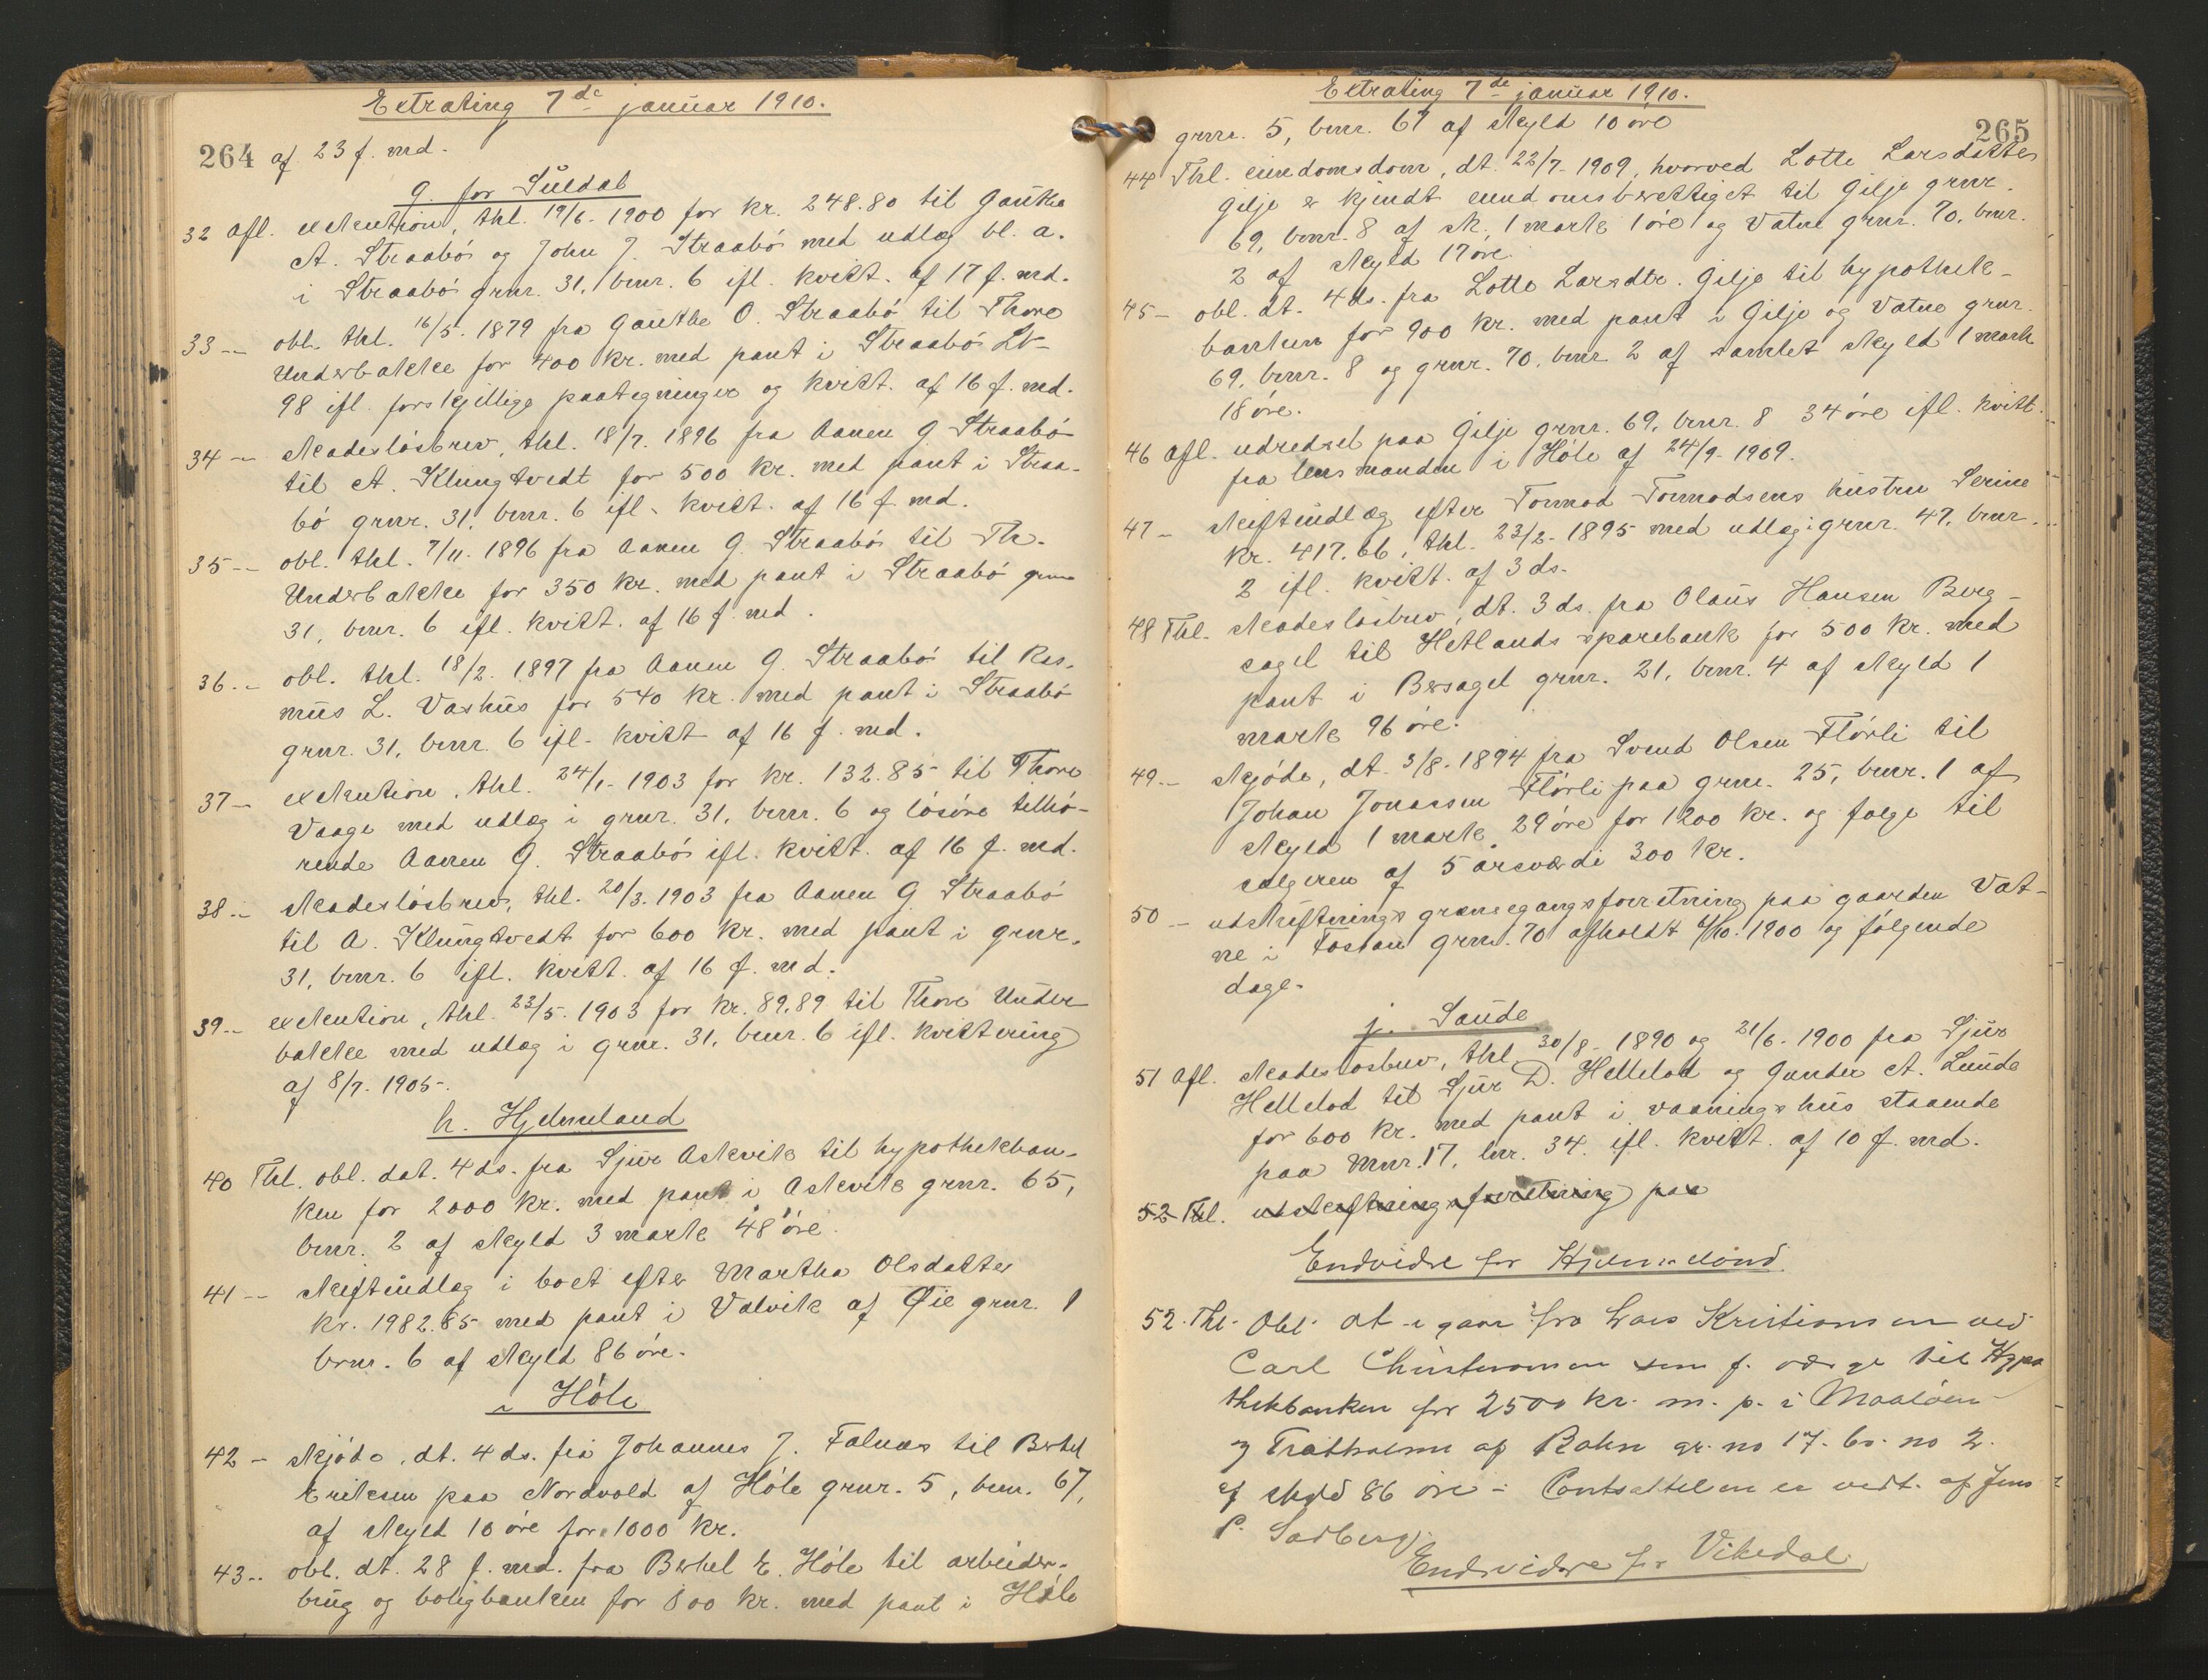 Extrating 7de januar 1910.
264 af 23 f. md.
g. for Suldal
32 Afl. exekution, thl. 19/6. 1900 for kr. 248.80 til Gauthe
A. Straabø og John J. Straabø med udlæg bl. a.
i Straabø grnr. 31, bnr. 6 ifl. kvitt. af 17 f. md.
33 -- obl. thl. 16/5. 1879 fra Gauthe O. Straabø til Thore
Underbakke for 400 kr. med pant i Straabø Lb
98 ifl. forskjellige paategninger og kvitt. af 16 f. md.
34 -- skadesløsbrev, thl. 18/7. 1896 fra Aanen G. Straabø
til A. Klungtvedt for 500 kr. med pant i Straa-
bø grnr. 31, bnr. 6 ifl. kvitt. af 16 f. md.
35 -- obl. thl. 7/11. 1896 fra Aanen G. Straabø til Th.
Underbakke for 350 kr. med pant i Straabø grnr
31, bnr. 6 ifl. kvitt. af 16 f. md.
36 -- obl. thl. 18/2. 1897 fra Aanen G. Straabø til Ras-
mus L. Vashus for 540 kr. med pant i Straabø
grnr. 31, bnr. 6 ifl. kvitt af 16 f. md.
37 -- exekution, thl. 24/1. 1903 for kr. 132.85 til Thore
Vaage med udlæg i grnr. 31, bnr. 6 og løsøre tilhø-
rende Aanen G. Straabø ifl. kvitt. af 16 f. md.
38 -- skadesløsbrev, thl. 20/3. 1903 fra Aanen G. Straabø
til A. Klungtvedt for 600 kr. med pant i grnr.
31, bnr. 6 ifl. kvitt. af 16 f. md.
39 -- exekution, thl. 23/5. 1903 for kr. 89.89 til Thore Under
bakke med udlæg i grnr. 31, bnr. 6 ifl. kvittering
af 8/7. 1905.
h. Hjelmeland
40 Thl. obl. dat. 4 ds. fra Sjur Askvik til hypothekban-
ken for 2000 kr. med pant i Askvik grnr. 65,
bnr. 2 af skyld 3 mark 48 øre.
41 -- skiftudlæg i boet efter Martha Olsdatter
kr. 1982.85 med pant i Valvik af Øie grnr. 1
bnr. 6 af skyld 86 øre.
i Høle
42 - skjøde, dt. 4 ds. fra Johannes J. Falnes til Berthel
Eriksen paa Nordvold af Høle grnr. 5, bnr. 67,
af skyld 10 øre for 1000 kr.
43 -- obl. dt. 28 f. md. fra Berthel E. Høle til arbeider-
brug og boligbanken for 800 kr. med pant i Høle
Extrating 7de januar 1910.
265
grnr. 5, bnr. 67 af skyld 10 øre
44 Thl. eiendomsdom, dt. 22/7. 1909, hvorved Lotte Larsdatter
Gilje er kjendt eiendomsberettiget til Gilje grnr.
69, bnr. 8 af sk. 1 mark 1 øre og Vatne grnr. 70, bnr.
2 af skyld 17 øre.
45 - obl. dt. 4 ds. fra Lotte Larsdtr. Gilje til hypothek-
banken for 900 kr. med pant i Gilje og Vatne grnr.
69, bnr. 8 og grnr. 70, bnr. 2 af samlet skyld 1 mark
18 øre.
46 Afl. udredsel paa Gilje grnr. 69, bnr. 8 34 øre ifl. kvitt.
fra lensmanden i Høle af 24/9. 1909.
47 - skiftudlæg efter Tormod Tormodsens hustru Serine
kr. 417.66, thl. 23/2. 1895 med udlæg i grnr. 47, bnr.
2 ifl. kvitt. af 3 ds.
48 Thl. skadesløsbrev, dt. 3 ds. fra Olaus Hansen Berg-
sagel til Hetlands sparebank for 500 kr. med
pant i Bersagel grnr. 21, bnr. 4 af skyld 1
mark 96 øre.
49 -- skjøde, dt. 3/8. 1894 fra Svend Olsen Flørli til
Johan Jonassen Flørli paa grnr. 25, bnr. 1 af
skyld 1 mark 29 øre for 1200 kr. og følge til
sælgeren af 5 årsværdi 300 kr.
50 - udskiftnings grænsegangsforretning paa gaarden Vat-
ne i Fossan grnr. 70 afholdt 4/10. 1900 og følgende
dage.
j. Saude
51 Afl. skadesløsbrev, thl. 30/8. 1890 og 21/6. 1900 fra Sjur
Hellelod til Sjur D. Hellelod og Gunder A. Lunde
for 600 kr. med pant i vaaningshus staaende
paa Mnr. 17, lnr. 34. ifl. kvitt. af 10 f. md.
52 Thl. udskiftningsforretning paa
Endvidere for Hjelmeland
52. Thl. Obl. dt i gaar fra Lars Kristiansen ved
Carl Christensen som f. værge til Hypo
thekbanken for 2500 kr. m. p. i Maaløen
og Tratholmen af Rahn gr. no 17. br. no 2.
af skyld 86 øre - Pantsættelsen er vedt. af Jens
P. Sadberg.
Endvidere for Vikedal.